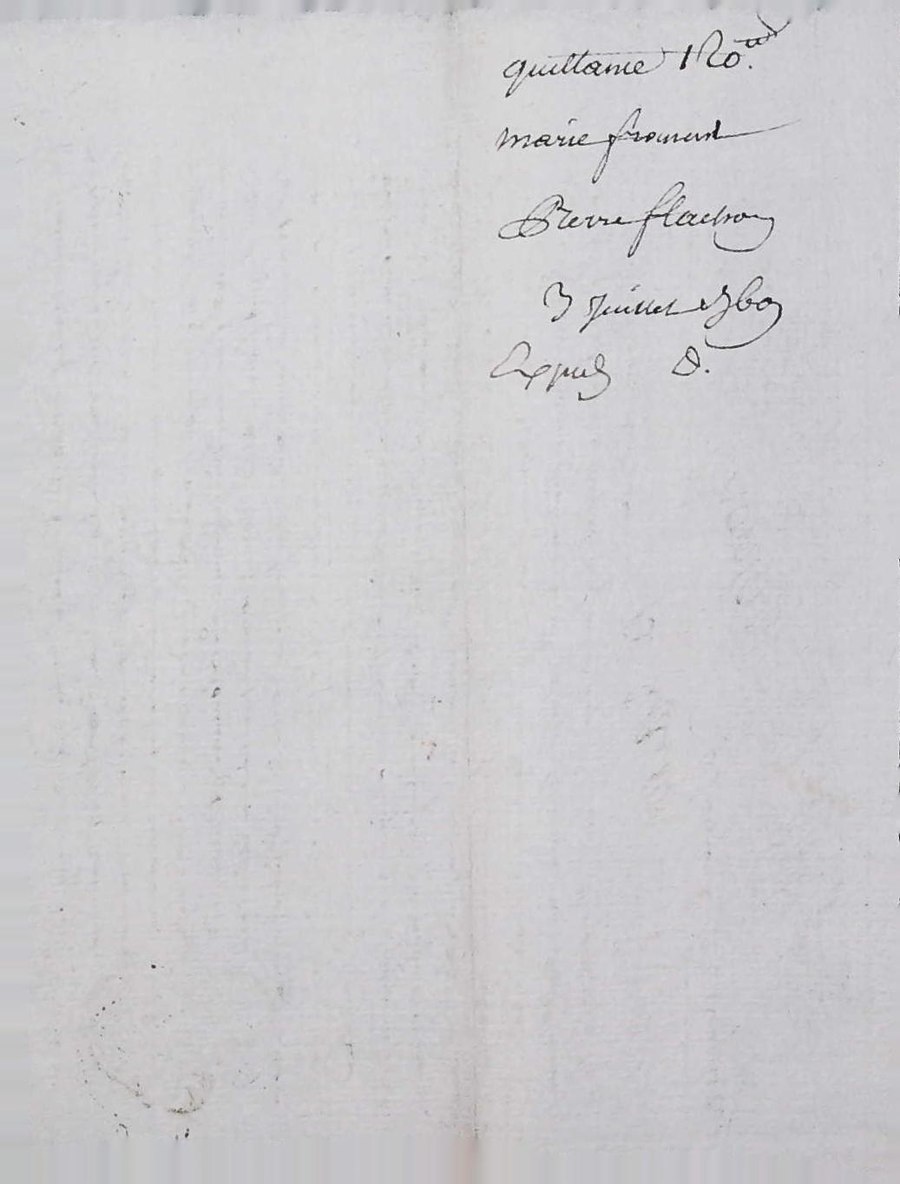 quittance 120.tt
marie froment
Pierre flachon
3 juillet 1760
Expedi d.